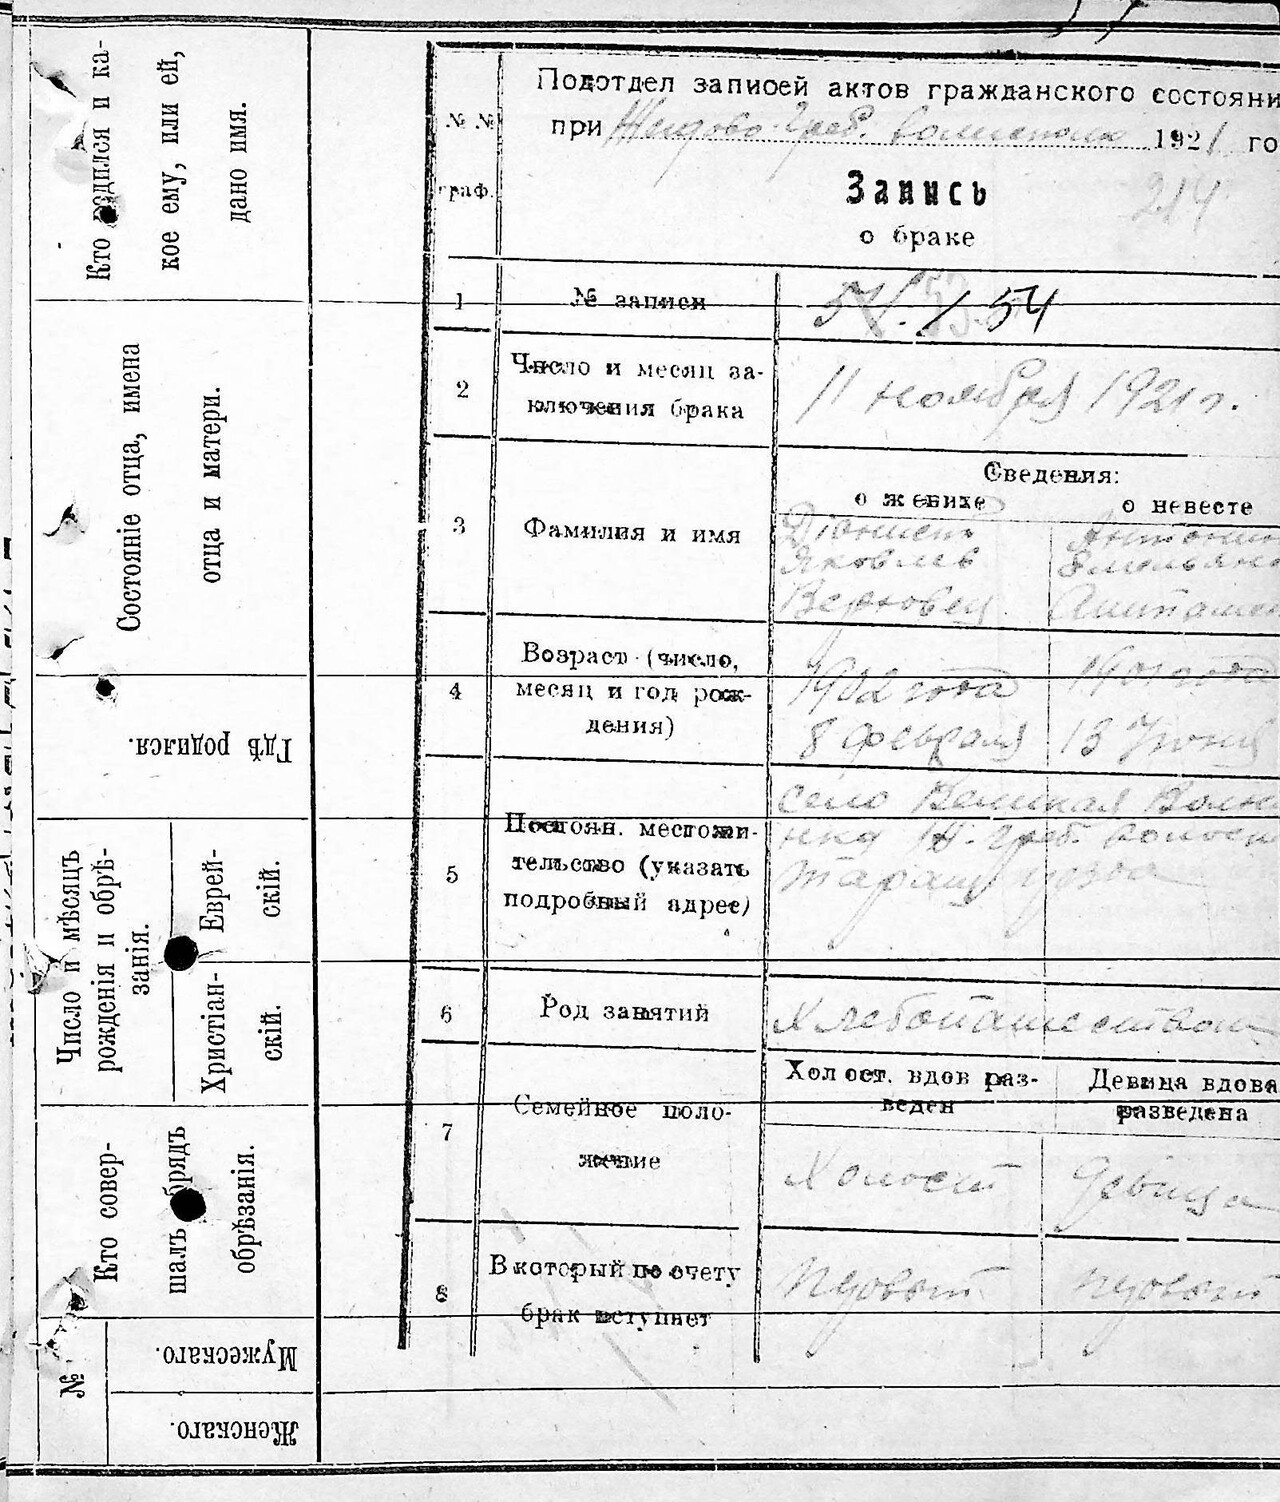 Кто родился и ка-
кое ему, или ей,
дано имя.
Состояніе отца, имена
отца и матери.
Гдѣ родился.
Число и мѣсяцъ
рожденія и обрѣ-
занія.
Еврей-
скій.
Христіан-
скій.
Кто совер-
шалъ обрядъ
обрѣзанія.
№
Мужескаго.
Женскаго.
№ №
граф.
Подотдел записей актов гражданского состояни
при волисполк 1921 го
Запись
214
о браке
1 № записи 54
2 Число и месяц за-
ключения брака
11 ноября 1921 г.
Сведения:
о женихе о невесте
3 Фамилия и имя
Яковлев
Верховец
4 Возраст (число,
месяц и год рож-
дения)
1902 года
8 февраля
1901 года
13 Июня
5 Постоян. местожи-
тельство (указать
подробный адрес)
село Великая Вольн
нка Ж. греб. волост
Таращ уезда
6 Род занятий
Хлебопашеством
7 Семейное поло-
жение
Холост. вдов раз-
веден
Девица вдова
разведена
Холост
Девица
8 В который по счету
брак вступает
первый
первый